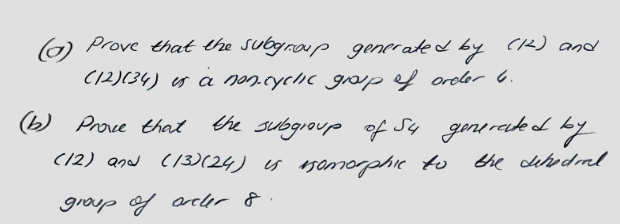 (a) Prove that the subgroup generated by (12) and
(12)(34) is a noncyclic group of order 6.
(b) Prove that the subgroup of S4 generated by
(12) and (13)(24) is isomorphic to the dihedral
group of order 8.